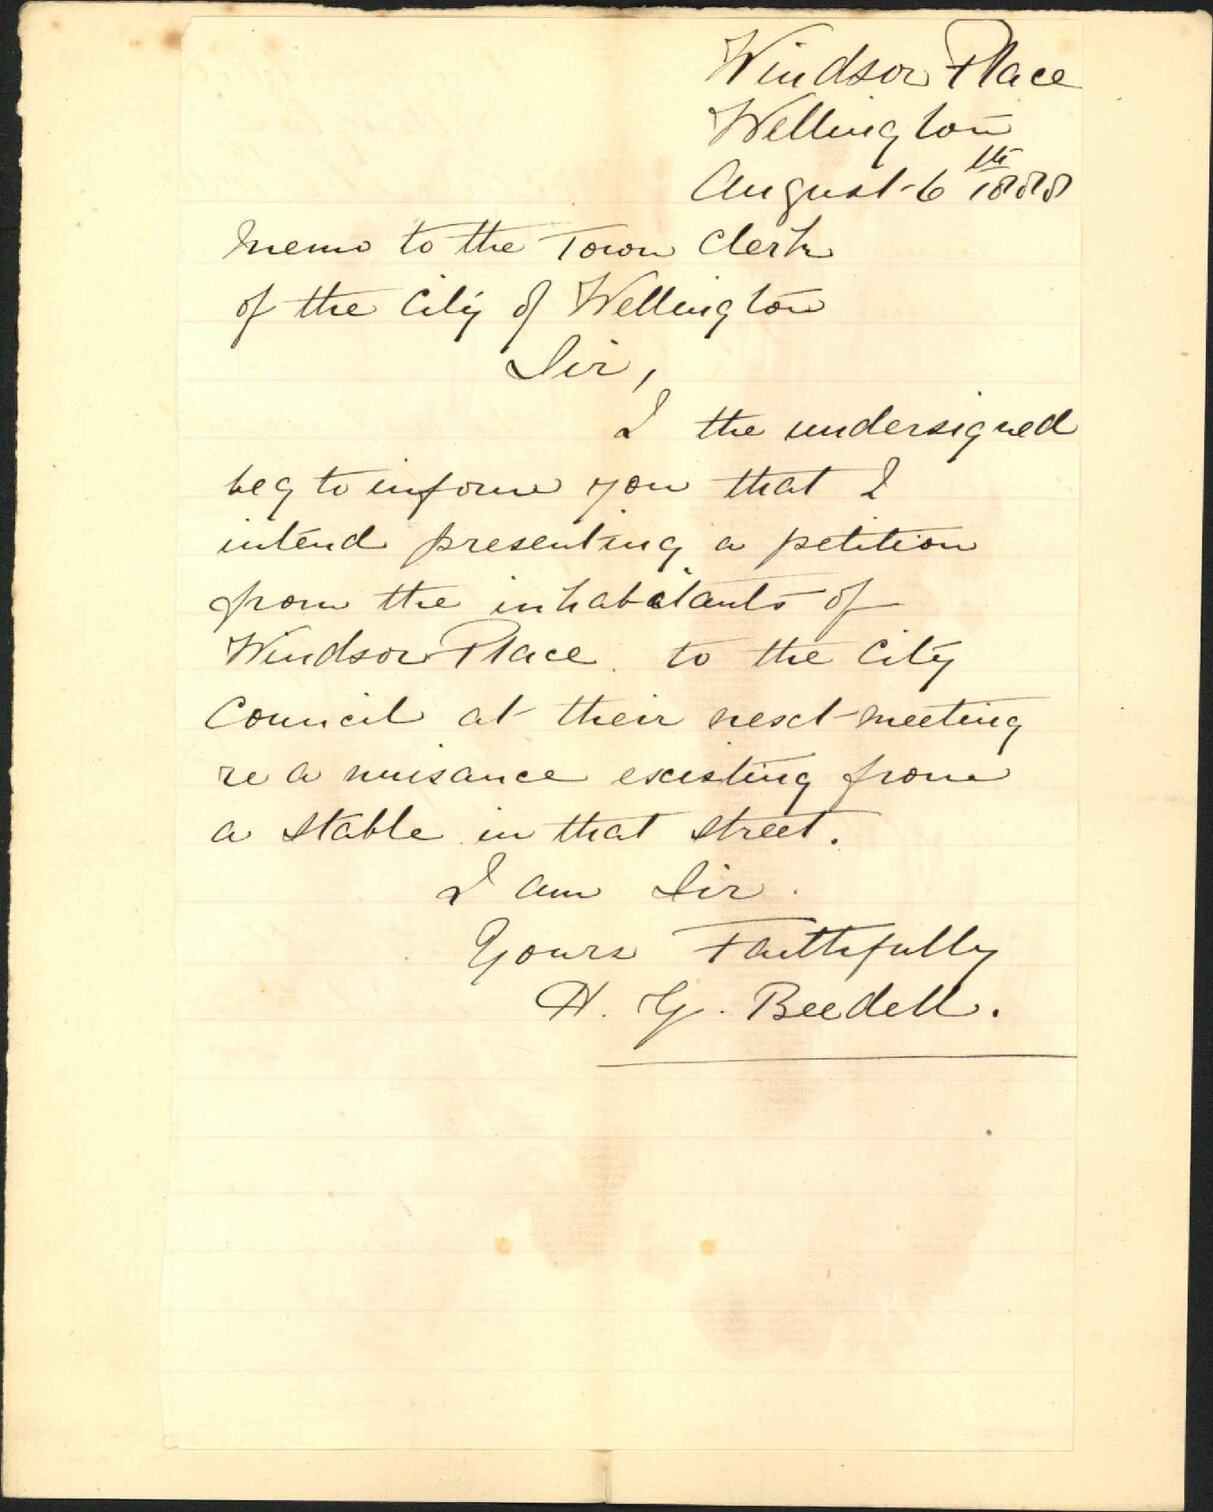 Windsor Place
Wellington
August 6th 1888
Memo to the Town Clerk
of the City of Wellington
Sir,
I the undersigned
beg to inform you that I
intend presenting a petition
from the inhabitants of
Windsor Place. to the City
Council at their next meeting
re a nuisance existing from
a stable in that street.
I am Sir.
Yours Faithfully
H. G. Beedell.